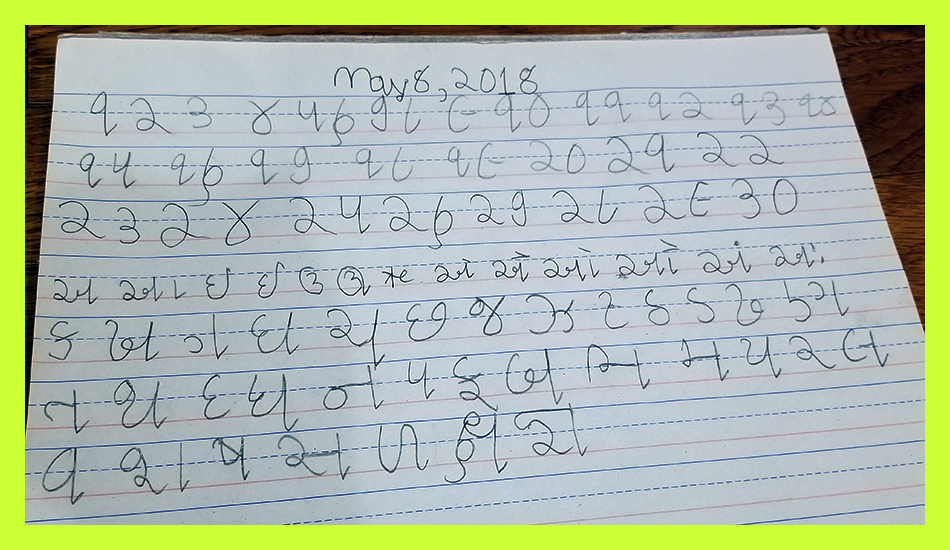 May 8, 2018
૧ ૨ ૩ ૪ ૫ ૬ ૭ ૮ ૯ ૧૦ ૧૧ ૧૨ ૧૩ ૧૪
૧૫ ૧૬ ૧૭ ૧૮ ૧૯ ૨૦ ૨૧ ૨૨
૨૩ ૨૪ ૨૫ ૨૬ ૨૭ ૨૮ ૨૯ ૩૦
અ આ ઇ ઈ ઉ ઊ ઋ એ ઐ ઓ ઔ અં અઃ
ક ખ ગ ઘ ચ છ જ ઝ ટ ઠ ડ ઢ ણ
ત થ દ ધ ન પ ફ બ ભ મ ય ર લ
વ શ ષ સ હ ળ ક્ષ જ્ઞ